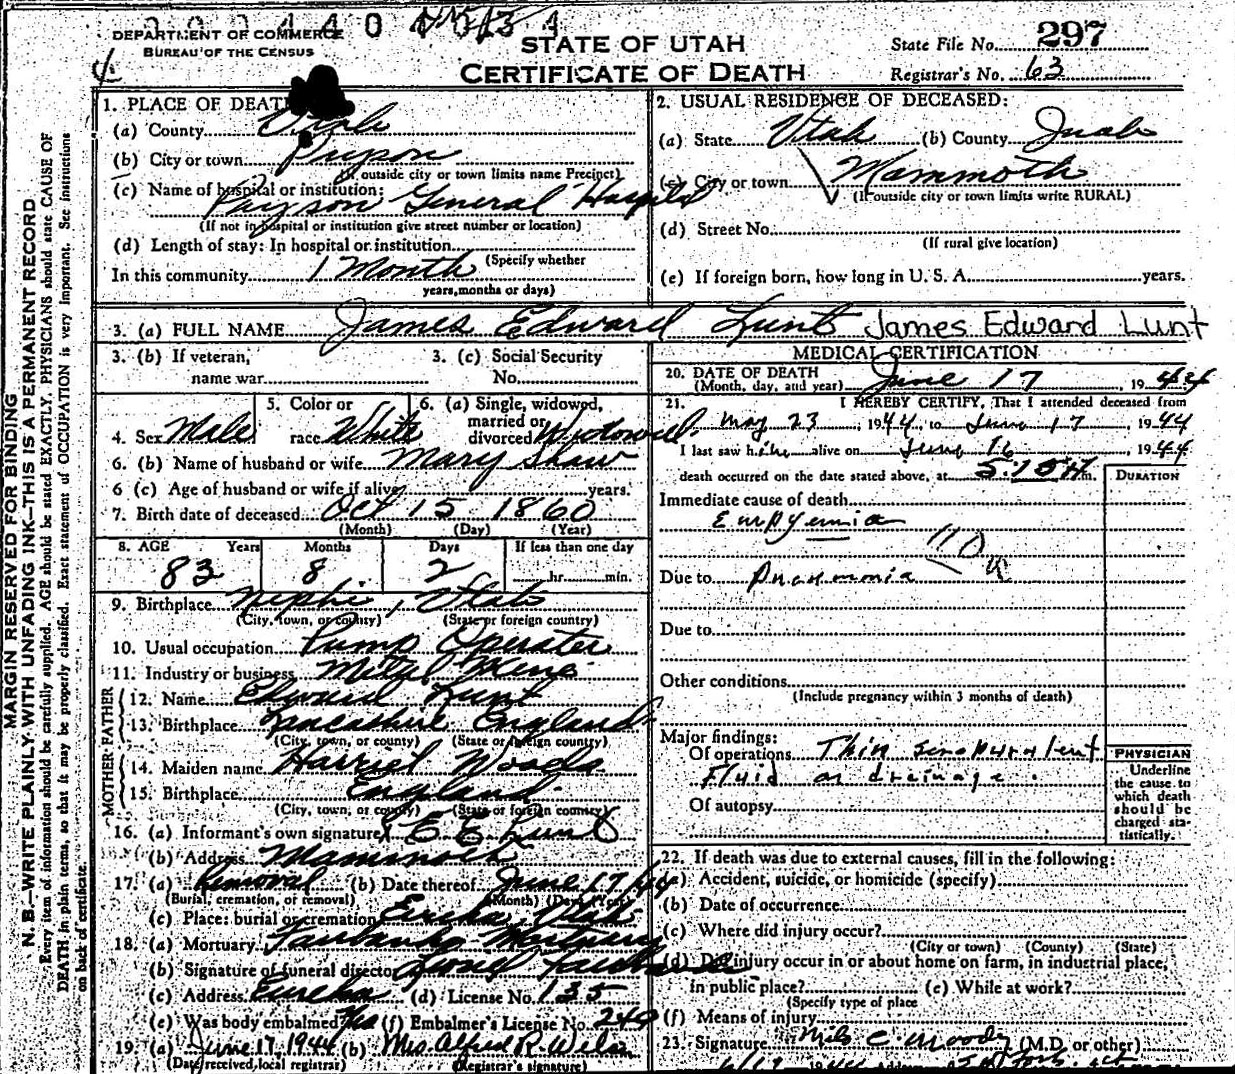 DEPARTMENT OF COMMERCE
BUREAU OF THE CENSUS
STATE OF UTAH
CERTIFICATE OF DEATH
State File No. 297
Registrar's No. 63
MARGIN RESERVED FOR BINDING
N. B.—WRITE PLAINLY WITH UNFADING INK—THIS IS A PERMANENT RECORD
Every item of information should be carefully supplied. AGE should be stated EXACTLY. PHYSICIANS should state CAUSE OF
DEATH in plain terms, so that it may be properly classified. Exact statement of OCCUPATION is very important. See instructions
on back of certificate.
1. PLACE OF DEATH
(a) County Utah
(b) City or town Payson
(If outside city or town limits name Precinct)
(c) Name of hospital or institution:
Payson General Hospital
(If not in hospital or institution give street number or location)
(d) Length of stay: In hospital or institution
(Specify whether
In this community 1 Month
years, months or days)
2. USUAL RESIDENCE OF DECEASED:
(a) State Utah (b) County Juab
(c) City or town Mammoth
(If outside city or town limits write RURAL)
(d) Street No.
(If rural give location)
(e) If foreign born, how long in U. S. A. years.
3. (a) FULL NAME James Edward Lunt James Edward Lunt
3. (b) If veteran,
name war
3. (c) Social Security
No.
4. Sex Male
5. Color or
race White
6. (a) Single, widowed,
married or
divorced Widowed
6. (b) Name of husband or wife Mary Shaw
6 (c) Age of husband or wife if alive years.
7. Birth date of deceased Oct 15 1860
(Month) (Day) (Year)
8. AGE Years Months Days If less than one day
83 8 2 hr. min.
9. Birthplace Nephi, Utah
(City, town, or county) (State or foreign country)
10. Usual occupation Pump Operater
11. Industry or business Metal Mine
FATHER
12. Name Edward Lunt
13. Birthplace Lancashire England
(City, town, or county) (State or foreign country)
MOTHER
14. Maiden name Harriet Woods
15. Birthplace England
(City, town, or county) (State or foreign country)
16. (a) Informant's own signature E E Lunt
(b) Address Mammoth
17. (a) Removal (b) Date thereof June 17/44
(Burial, cremation, or removal) (Month) (Day) (Year)
(c) Place: burial or cremation Eureka, Utah
18. (a) Mortuary Fairbanks Mortuary
(b) Signature of funeral director
(c) Address Eureka (d) License No. 135
(e) Was body embalmed Yes (f) Embalmer's License No. 240
19. (a) June 17, 1944 (b) Mrs. Alfred R.
(Date received, local registrar) (Registrar's signature)
MEDICAL CERTIFICATION
20. DATE OF DEATH
(Month, day, and year) June 17, 1944
21. I HEREBY CERTIFY, That I attended deceased from
May 23, 1944, to June 17, 1944
I last saw him alive on June 16, 1944
death occurred on the date stated above, at 5:15 A m.
DURATION
Immediate cause of death
Empyemia
110a
Due to Pneumonia
Due to
Other conditions
(Include pregnancy within 3 months of death)
Major findings:
Of operations Thin seropurulent
Fluid on drainage.
Of autopsy
PHYSICIAN
Underline
the cause to
which death
should be
charged sta-
tistically.
22. If death was due to external causes, fill in the following:
(a) Accident, suicide, or homicide (specify)
(b) Date of occurrence
(c) Where did injury occur?
(City or town) (County) (State)
(d) Did injury occur in or about home on farm, in industrial place,
in public place? (e) While at work?
(Specify type of place
(f) Means of injury
23. Signature Milo C. Moody (M.D. or other)